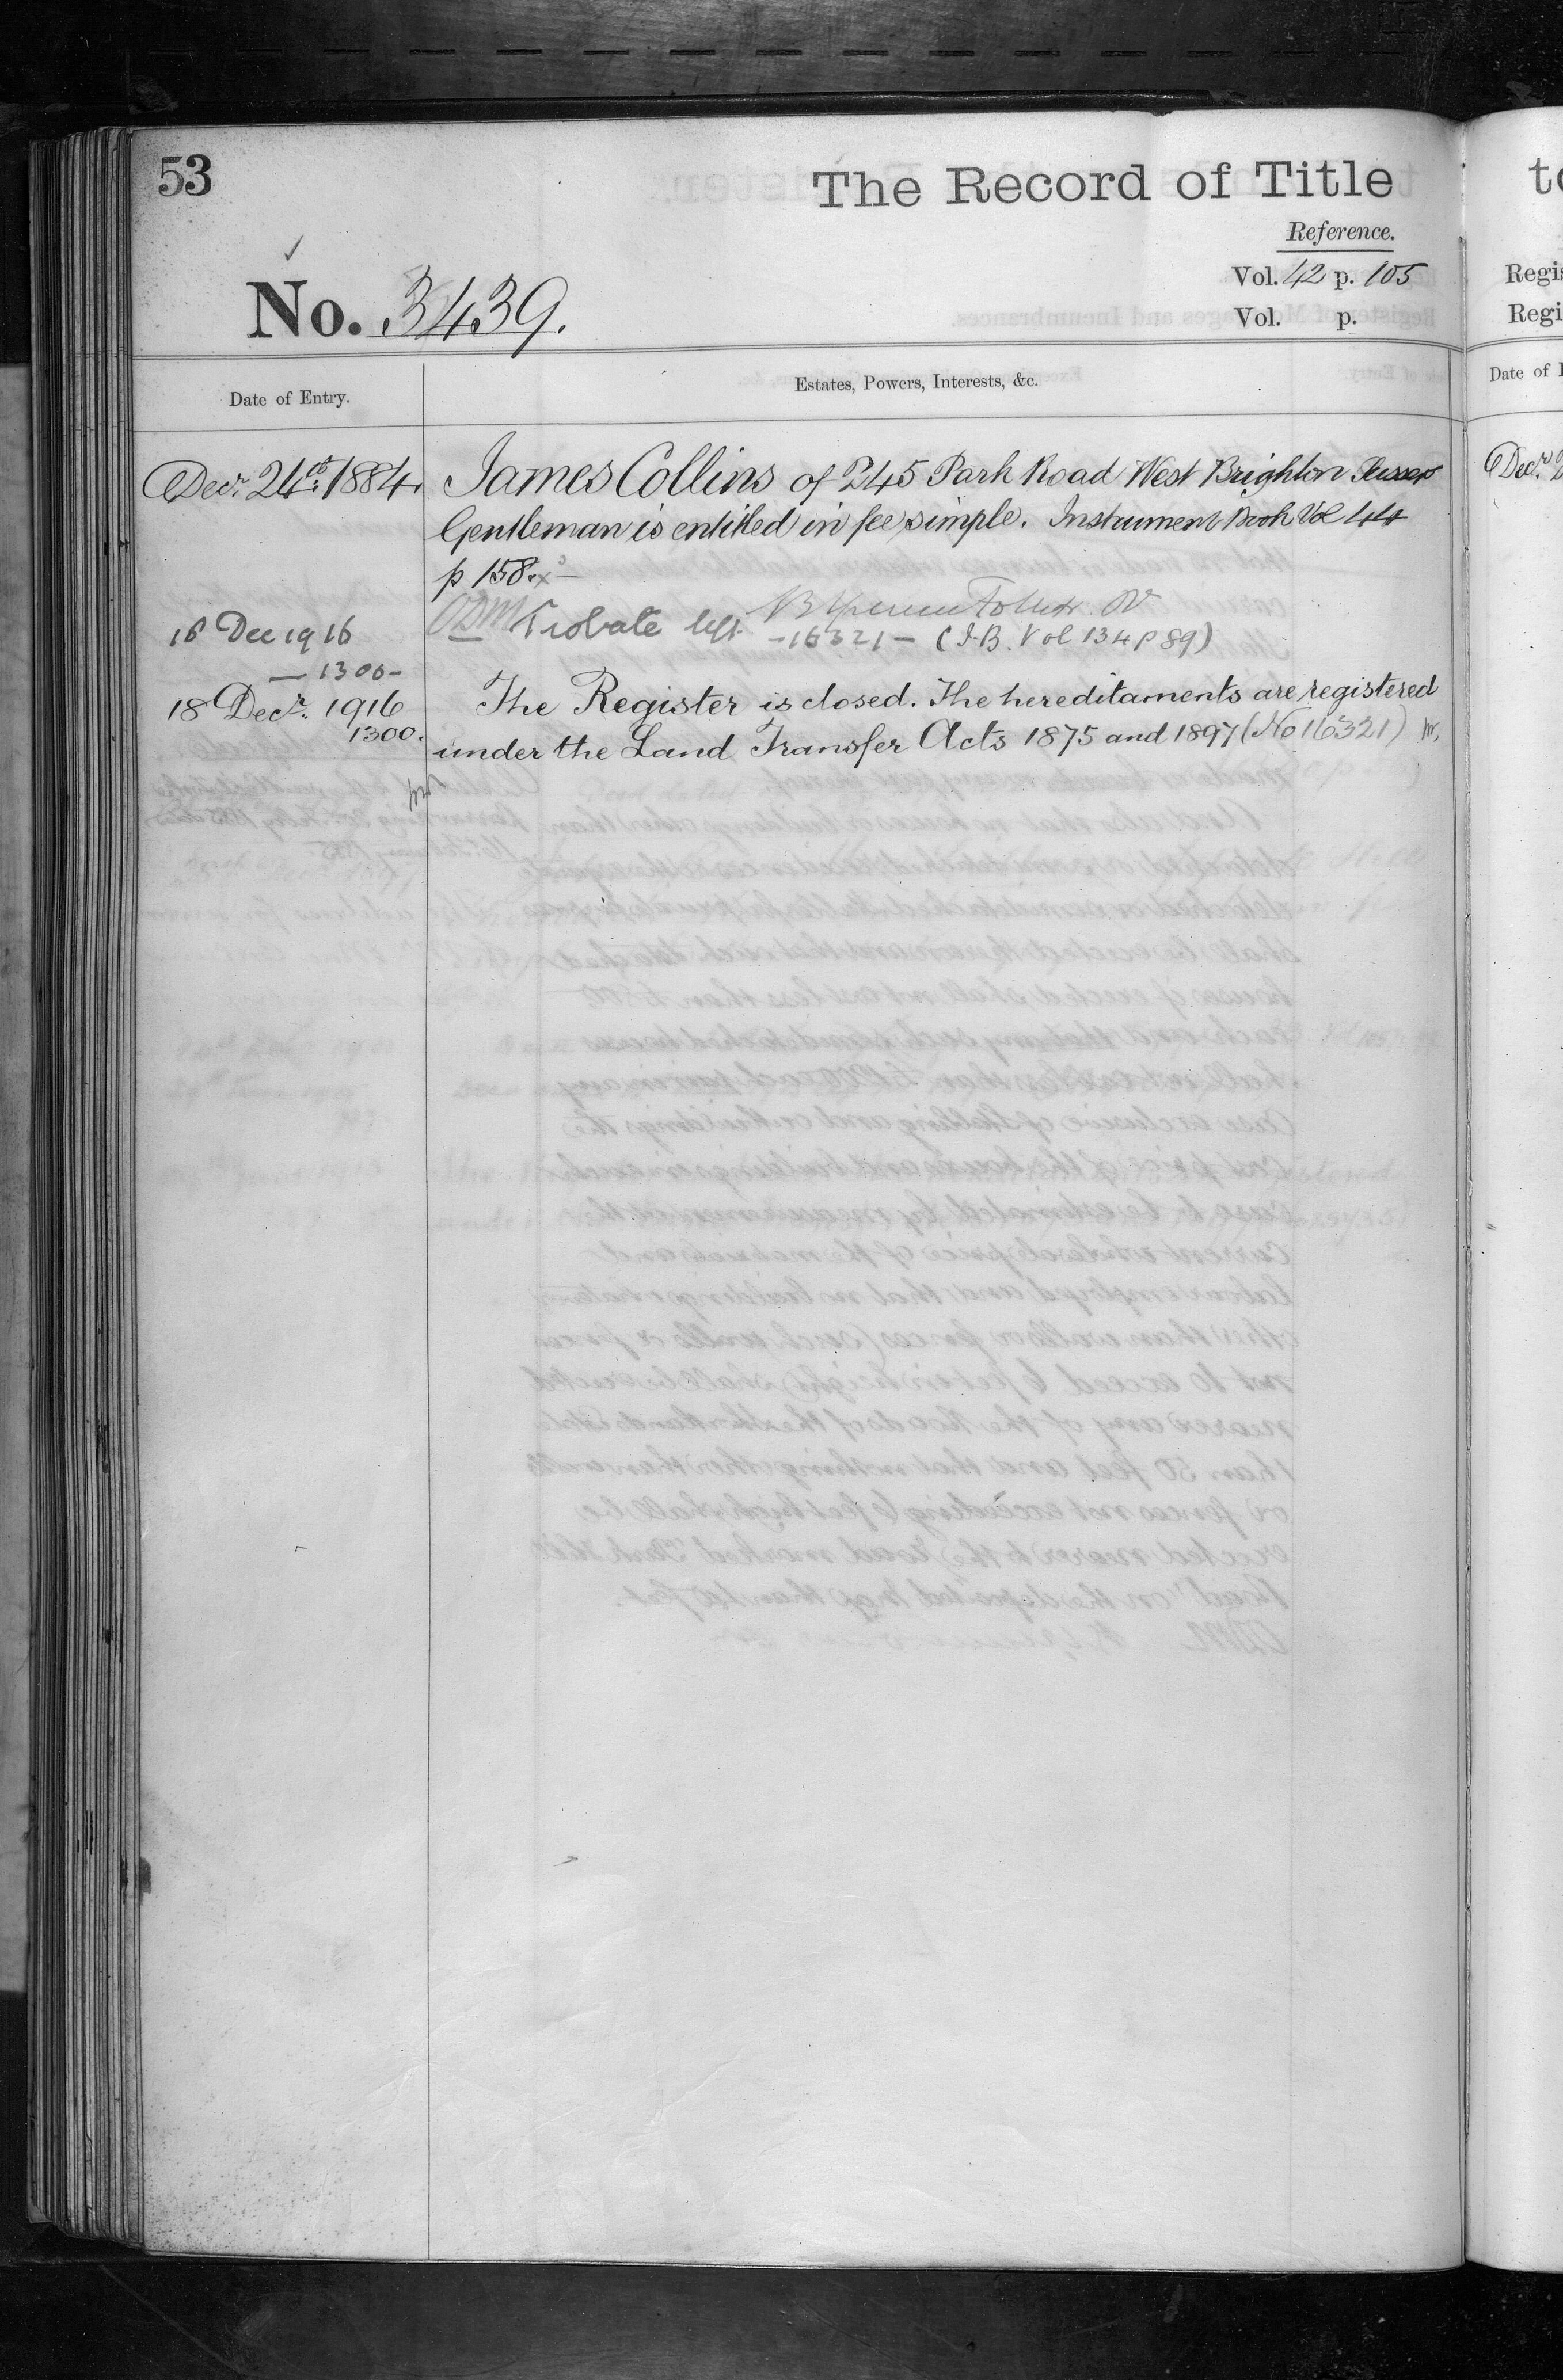 53
The Record of Title
Reference.
Vol. 42 p. 105
No. 3439.
Vol. p.
Date of Entry.
Estates, Powers, Interests, &c.
Decr. 24th. 1884. James Collins of 245 Park Road West Brighton Sussex
Gentleman is entitled in fee simple. Instrument Book Vol 44
p 158.
16 Dec 1916 Probate left -16321- (I.B. Vol 134 p 89)
-1300-
18 Decr. 1916 The Register is closed. The hereditaments are registered
1300. under the Land Transfer Acts 1875 and 1897 (No 16321)
to
Regis
Regi
Date of E
Decr. 2